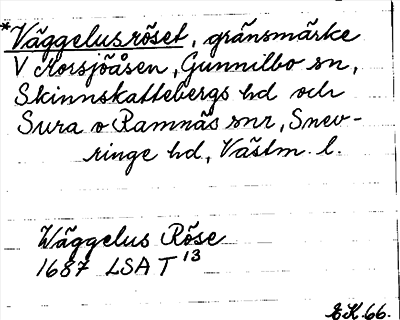 *Väggelusröset, gränsmärke
V Korsjöåsen, Gunnilbo sn,
Skinnskattebergs hd och
Sura o Ramnäs snr, Snev-
ringe hd, Västm. l.
Wäggelus Röse
1687 LSA T 13
E.K. 66.